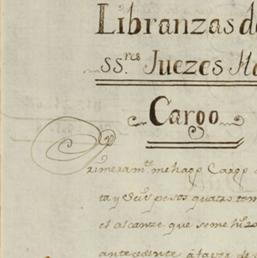 Libranzas de
ss.res Juezes
Cargo
Primeram.te me hago Cargo
ta y Seis pesos quatro tom
el alcanze que se me hizo
antecedente à favor de